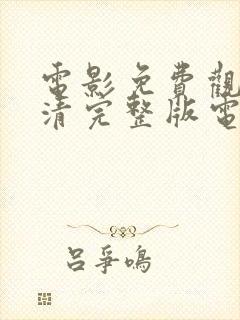 電影免費觀
清完整版電
呂爭鳴